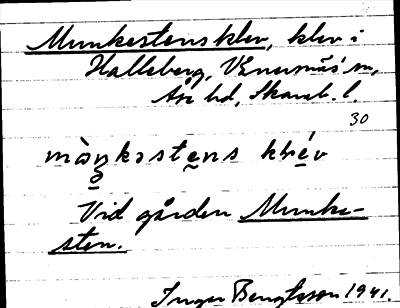 Munkestensklev, klev i
Halleberg, Vänersnäs sn,
Åse hd, Skarab. l.
30
mu̇ŋkəstens klév
Vid gården Munke-
sten.
Inger Bengtsson 1941.